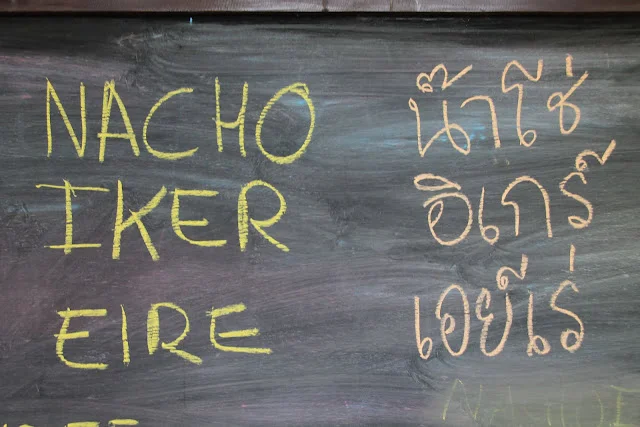 NACHO น๊าโช่
IKER อิเกร๊
EIRE เอย์เร่